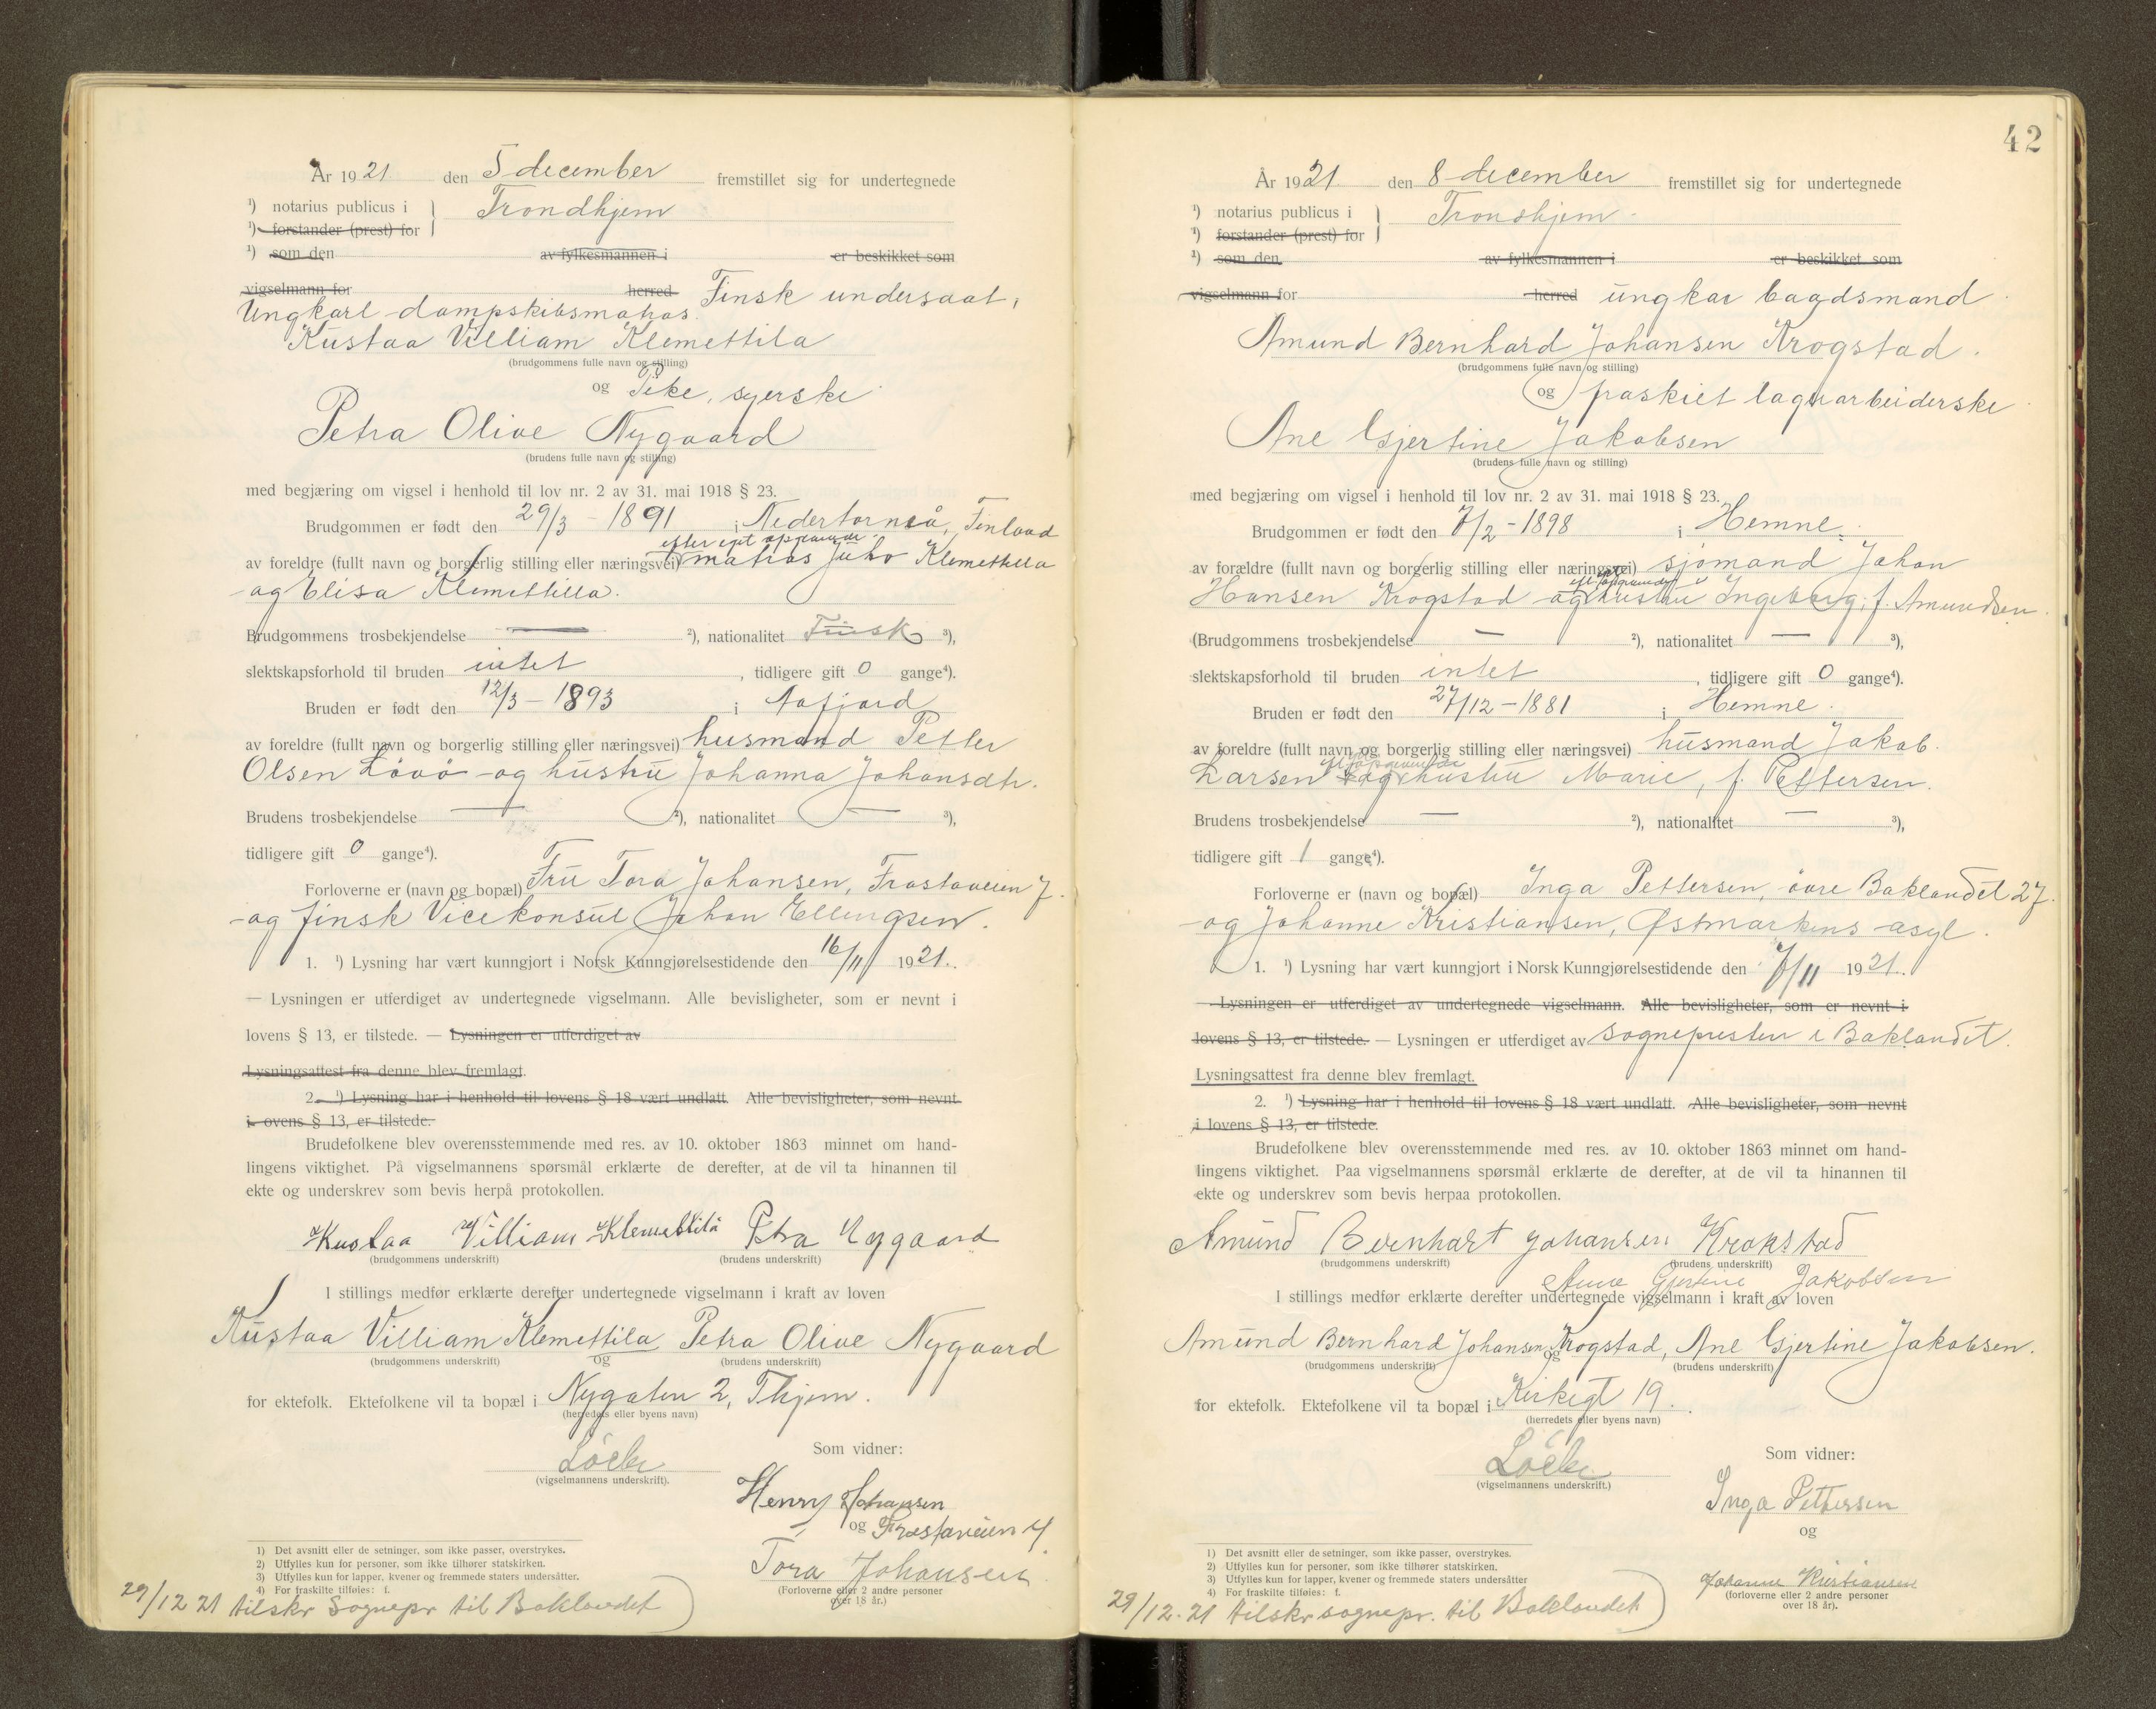 År 1921 den 5 december fremstillet sig for undertegnede
¹) notarius publicus i Trondhjem
¹) forstander (prest) for
¹) som den av fylkesmannen i er beskikket som
vigselmann for herred Finsk undersaat,
Ungkarl dampskibsmatros
Kustaa Villiam Klemettila
(brudgommens fulle navn og stilling)
og Pike, syerske
Petra Olive Nygaard
(brudens fulle navn og stilling)
med begjæring om vigsel i henhold til lov nr. 2 av 31. mai 1918 § 23.
Brudgommen er født den 29/3 - 1891 i Nedertorneå, Finland
efter eget opgivende
av foreldre (fullt navn og borgerlig stilling eller næringsvei) matros Juho Klemettilla
og Elisa Klemettilla.
Brudgommens trosbekjendelse — ²), nationalitet Finsk ³),
slektskapsforhold til bruden intet , tidligere gift 0 gange⁴).
Bruden er født den 12/3 - 1893 i Aafjord
av foreldre (fullt navn og borgerlig stilling eller næringsvei) husmand Petter
Olsen Lövö og hustru Johanna Johansdtr.
Brudens trosbekjendelse — ²), nationalitet — ³),
tidligere gift 0 gange⁴).
Forloverne er (navn og bopæl) Fru Tora Johansen, Frostaveien 7.
og finsk Vicekonsul Johan Ellingsen.
1. ¹) Lysning har vært kunngjort i Norsk Kunngjørelsestidende den 16/11 1921.
— Lysningen er utferdiget av undertegnede vigselmann. Alle bevisligheter, som er nevnt i
lovens § 13, er tilstede. — Lysningen er utferdiget av
Lysningsattest fra denne blev fremlagt.
2. ¹) Lysning har i henhold til lovens § 18 vært undlatt. Alle bevisligheter, som nevnt
i ovens § 13, er tilstede.
Brudefolkene blev overensstemmende med res. av 10. oktober 1863 minnet om hand-
lingens viktighet. På vigselmannens spørsmål erklærte de derefter, at de vil ta hinannen til
ekte og underskrev som bevis herpå protokollen.
Kustaa Villiam Klemettilä Petra Nygaard
(brudgommens underskrift) (brudens underskrift)
I stillings medfør erklærte derefter undertegnede vigselmann i kraft av loven
Kustaa Villiam Klemettila Petra Olive Nygaard
(brudgommens underskrift) og (brudens underskrift)
for ektefolk. Ektefolkene vil ta bopæl i Nygaten 2, Thjem.
(herredets eller byens navn)
Som vidner:
(vigselmannens underskrift).
Henry Johansen
og Frostaveien 7
Tora Johansen
(Forloverne eller 2 andre personer
over 18 år.)
1) Det avsnitt eller de setninger, som ikke passer, overstrykes.
2) Utfylles kun for personer, som ikke tilhører statskirken.
3) Utfylles kun for lapper, kvener og fremmede staters undersåtter.
4) For fraskilte tilføies: f.
29/12 21 tilskr Sognepr til Baklandet
42
År 1921. den 8 december fremstillet sig for undertegnede
¹) notarius publicus i Trondhjem
¹) forstander (prest) for
¹) som den av fylkesmannen i er beskikket som
vigselmann for herred ungkar baadsmand
Amund Bernhard Johansen Krogstad.
(brudgommens fulle navn og stilling)
og fraskilt lagerarbeiderske
Ane Gjertine Jakobsen
(brudens fulle navn og stilling)
med begjæring om vigsel i henhold til lov nr. 2 av 31. mai 1918 § 23.
Brudgommen er født den 7/2 - 1898 i Hemne.
av forældre (fullt navn og borgerlig stilling eller næringsvei) sjömand Johan
Hansen Krogstad og hustru Ingeborg, f. Amundsen.
(Brudgommens trosbekjendelse — ²), nationalitet — ³),
slektskapsforhold til bruden intet , tidligere gift 0 gange⁴).
Bruden er født den 27/12 - 1881 i Hemne.
av foreldre (fullt navn og borgerlig stilling eller næringsvei) husmand Jakob
Larsen og hustru Marie, f. Pettersen.
Brudens trosbekjendelse — ²), nationalitet — ³),
tidligere gift 1 gange⁴).
Forloverne er (navn og bopæl) Inga Pettersen, övre Baklandet 27.
og Johanne Kristiansen, Østmarkens asyl.
1. ¹) Lysning har vært kunngjort i Norsk Kunngjørelsestidende den 7/11 1921.
— Lysningen er utferdiget av undertegnede vigselmann. Alle bevisligheter, som er nevnt i
lovens § 13, er tilstede. — Lysningen er utferdiget av sognepresten i Baklandet.
Lysningsattest fra denne blev fremlagt.
2. ¹) Lysning har i henhold til lovens § 18 vært undlatt. Alle bevisligheter, som nevnt
i lovens § 13, er tilstede.
Brudefolkene blev overensstemmende med res. av 10. oktober 1863 minnet om hand-
lingens viktighet. Paa vigselmannens spørsmål erklærte de derefter, at de vil ta hinannen til
ekte og underskrev som bevis herpaa protokollen.
Amund Bernhart Johansen Krokstad
(brudgommens underskrift) (brudens underskrift)
Anne Gjertine Jakobsen
I stillings medfør erklærte derefter undertegnede vigselmann i kraft av loven
Amund Bernhard Johansen Krogstad, Ane Gjertine Jakobsen.
(brudgommens underskrift) og (brudens underskrift)
for ektefolk. Ektefolkene vil ta bopæl i Kirkegt 19.
(herredets eller byens navn)
Som vidner:
(vigselmannens underskrift.)
Inga Pettersen
og
Johanne Kristiansen
(forloverne eller 2 andre personer
over 18 år).
1) Det avsnitt eller de setninger, som ikke passer, overstrykes.
2) Utfylles kun for personer, som ikke tilhører statskirken.
3) Utfylles kun for lapper, kvener og fremmede staters undersåtter
4) For fraskilte tilføies: f.
29/12. 21 tilskr sognepr. til Baklandet